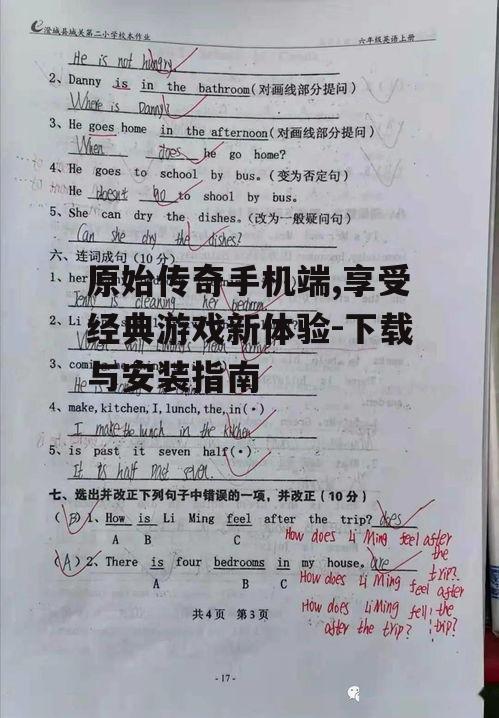 澄城县城关第二小学校本作业 六年级英语上册
He is not hungry
2、Danny is in the bathroom(对画线部分提问)
Where is Danny?
3、He goes home in the afternoon(对画线部分提问)
When does he go home?
4、He goes to school by bus。(变为否定句)
He doesn't go to shool by bus.
5、She can dry the dishes.(改为一般疑问句)
Can she dry the dishes?
六、连词成句(10分)
原始传奇手机端,享受
1、her
Jenny is cleaning her bedroom
经典游戏新体验-下载
2、Li
与安装指南
3、comi
4、make,kitchen,I,lunch,the,in(•)
I make the lunch in the kitchen
5、is past it seven half(•)
It is half past seven.
七、选出并改正下列句子中错误的一项,并改正(10分)
(B)1、How is Li Ming feel after the trip? does
A B C
How does Li Ming feel after the trip?
(A)2、There is four bedrooms in my house. are
A B C
How does Li Ming feel after the trip?
How does Li Ming fell after the trip?
共4页 第3页
-17-